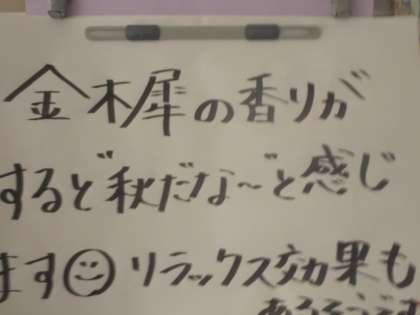 金木犀の香りが
すると“秋だな~”と感じ
ます☺リラックス効果も
あるそうです